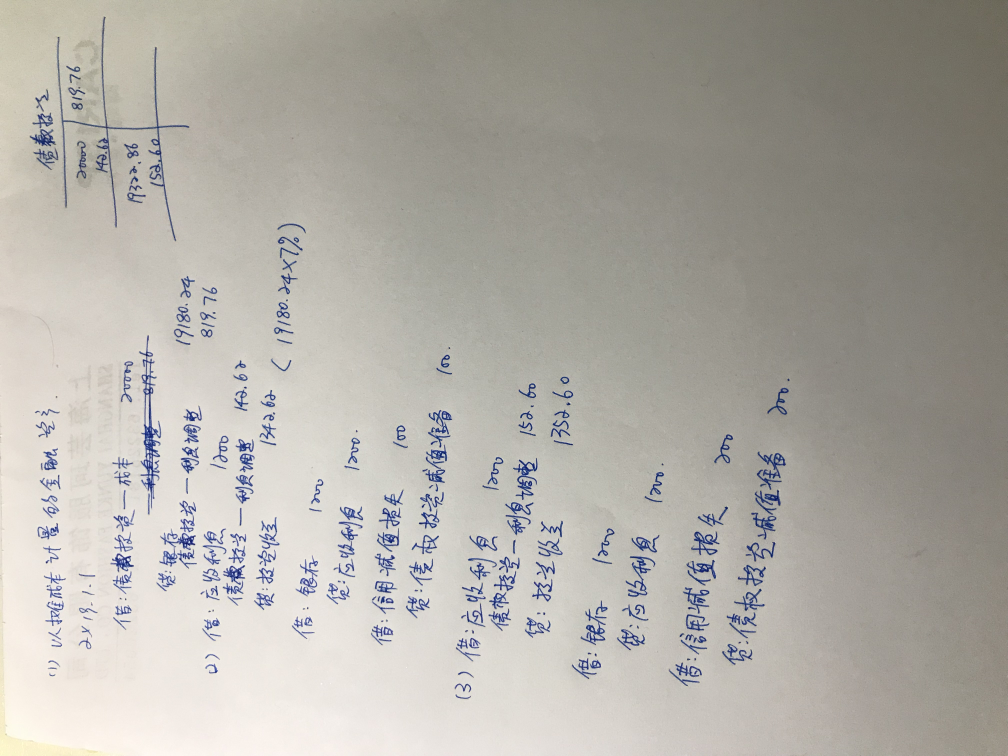 (1) 以摊成本计量的金融资产.
2×19.1.1
借:债权投资—成本 20000
利息调整 819.76
贷:银存 19180.24
债权投资—利息调整 819.76
(2) 借:应收利息 1200
债权投资—利息调整 142.62
贷:投资收益 1342.62 (19180.24×7%)
借:银存 1200
贷:应收利息 1200.
借:信用减值损失 100
贷:债权投资减值准备 100.
(3) 借:应收利息 1200
债权投资—利息调整 152.60
贷:投资收益 1352.60
借:银存 1200
贷:应收利息 1200.
借:信用减值损失 200
贷:债权投资减值准备 200.
债权投资
20000 819.76
142.62
19322.86
152.60